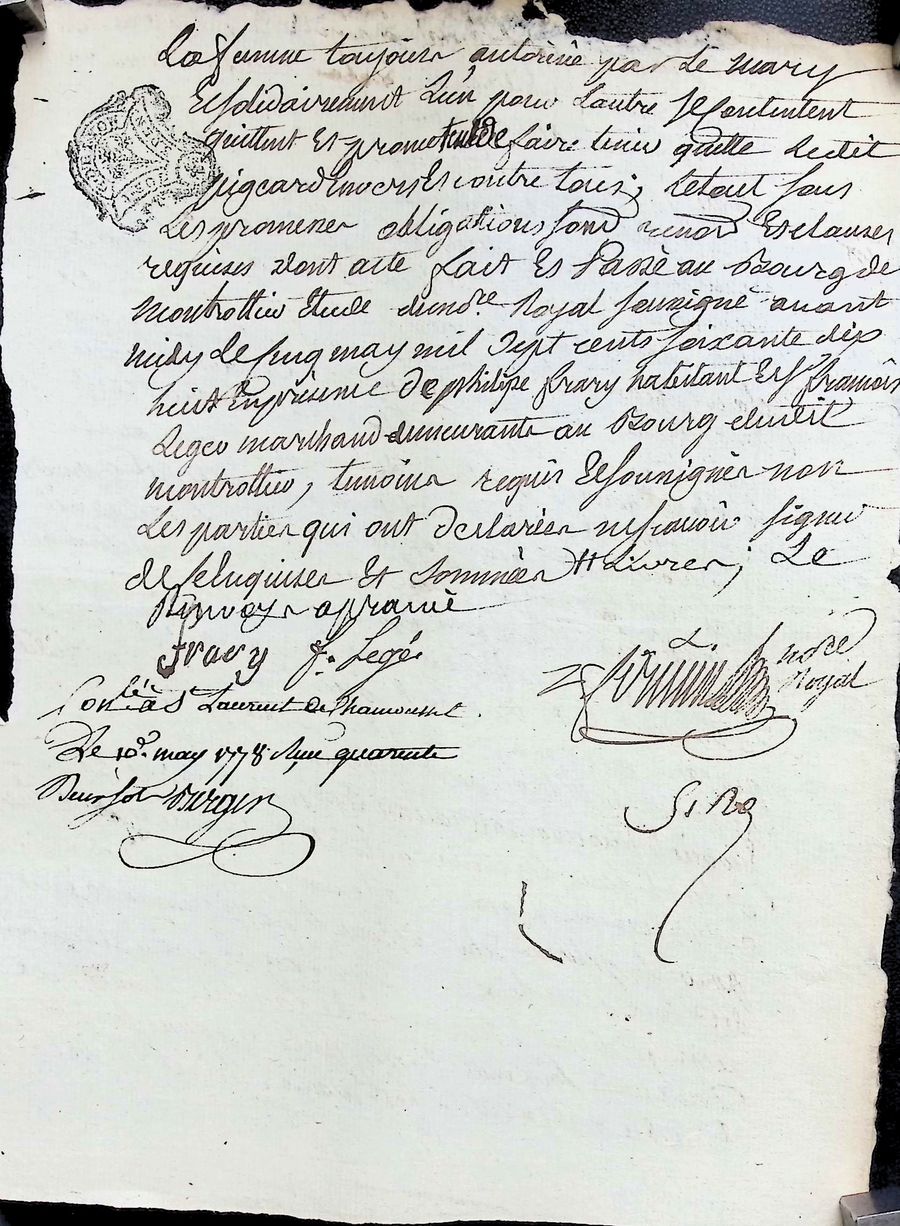 La femme toujours autorisé par le mary
Et solidairement l'un pour l'autre se contentent
quittent Et promettent de faire tenir quitte ledit
pigeard Envers Et contre tous; le tout sous
Les promesses obligations fond renon Et clauses
requises dont acte fait Et Passé au Bourg de
montrottier Etude du no.re Royal soussigné avant
midy le cinq may mil sept cents soixante dix
huit En présence de philipe frary habitant Et françois
Legeo marchand demeurants au Bourg dudit
montrottier, temoins requis Et soussignés non
Les parties qui ont declarées ne sçavoir signer
de ce enquises Et sommées # Livres; Le
Renvoy approuvé
fravy f. Legé
no.re
Royal
Con.lé à St Laurent de chamousset
Le 10.e may 1778 Reçu quarente
Deux sols Berger